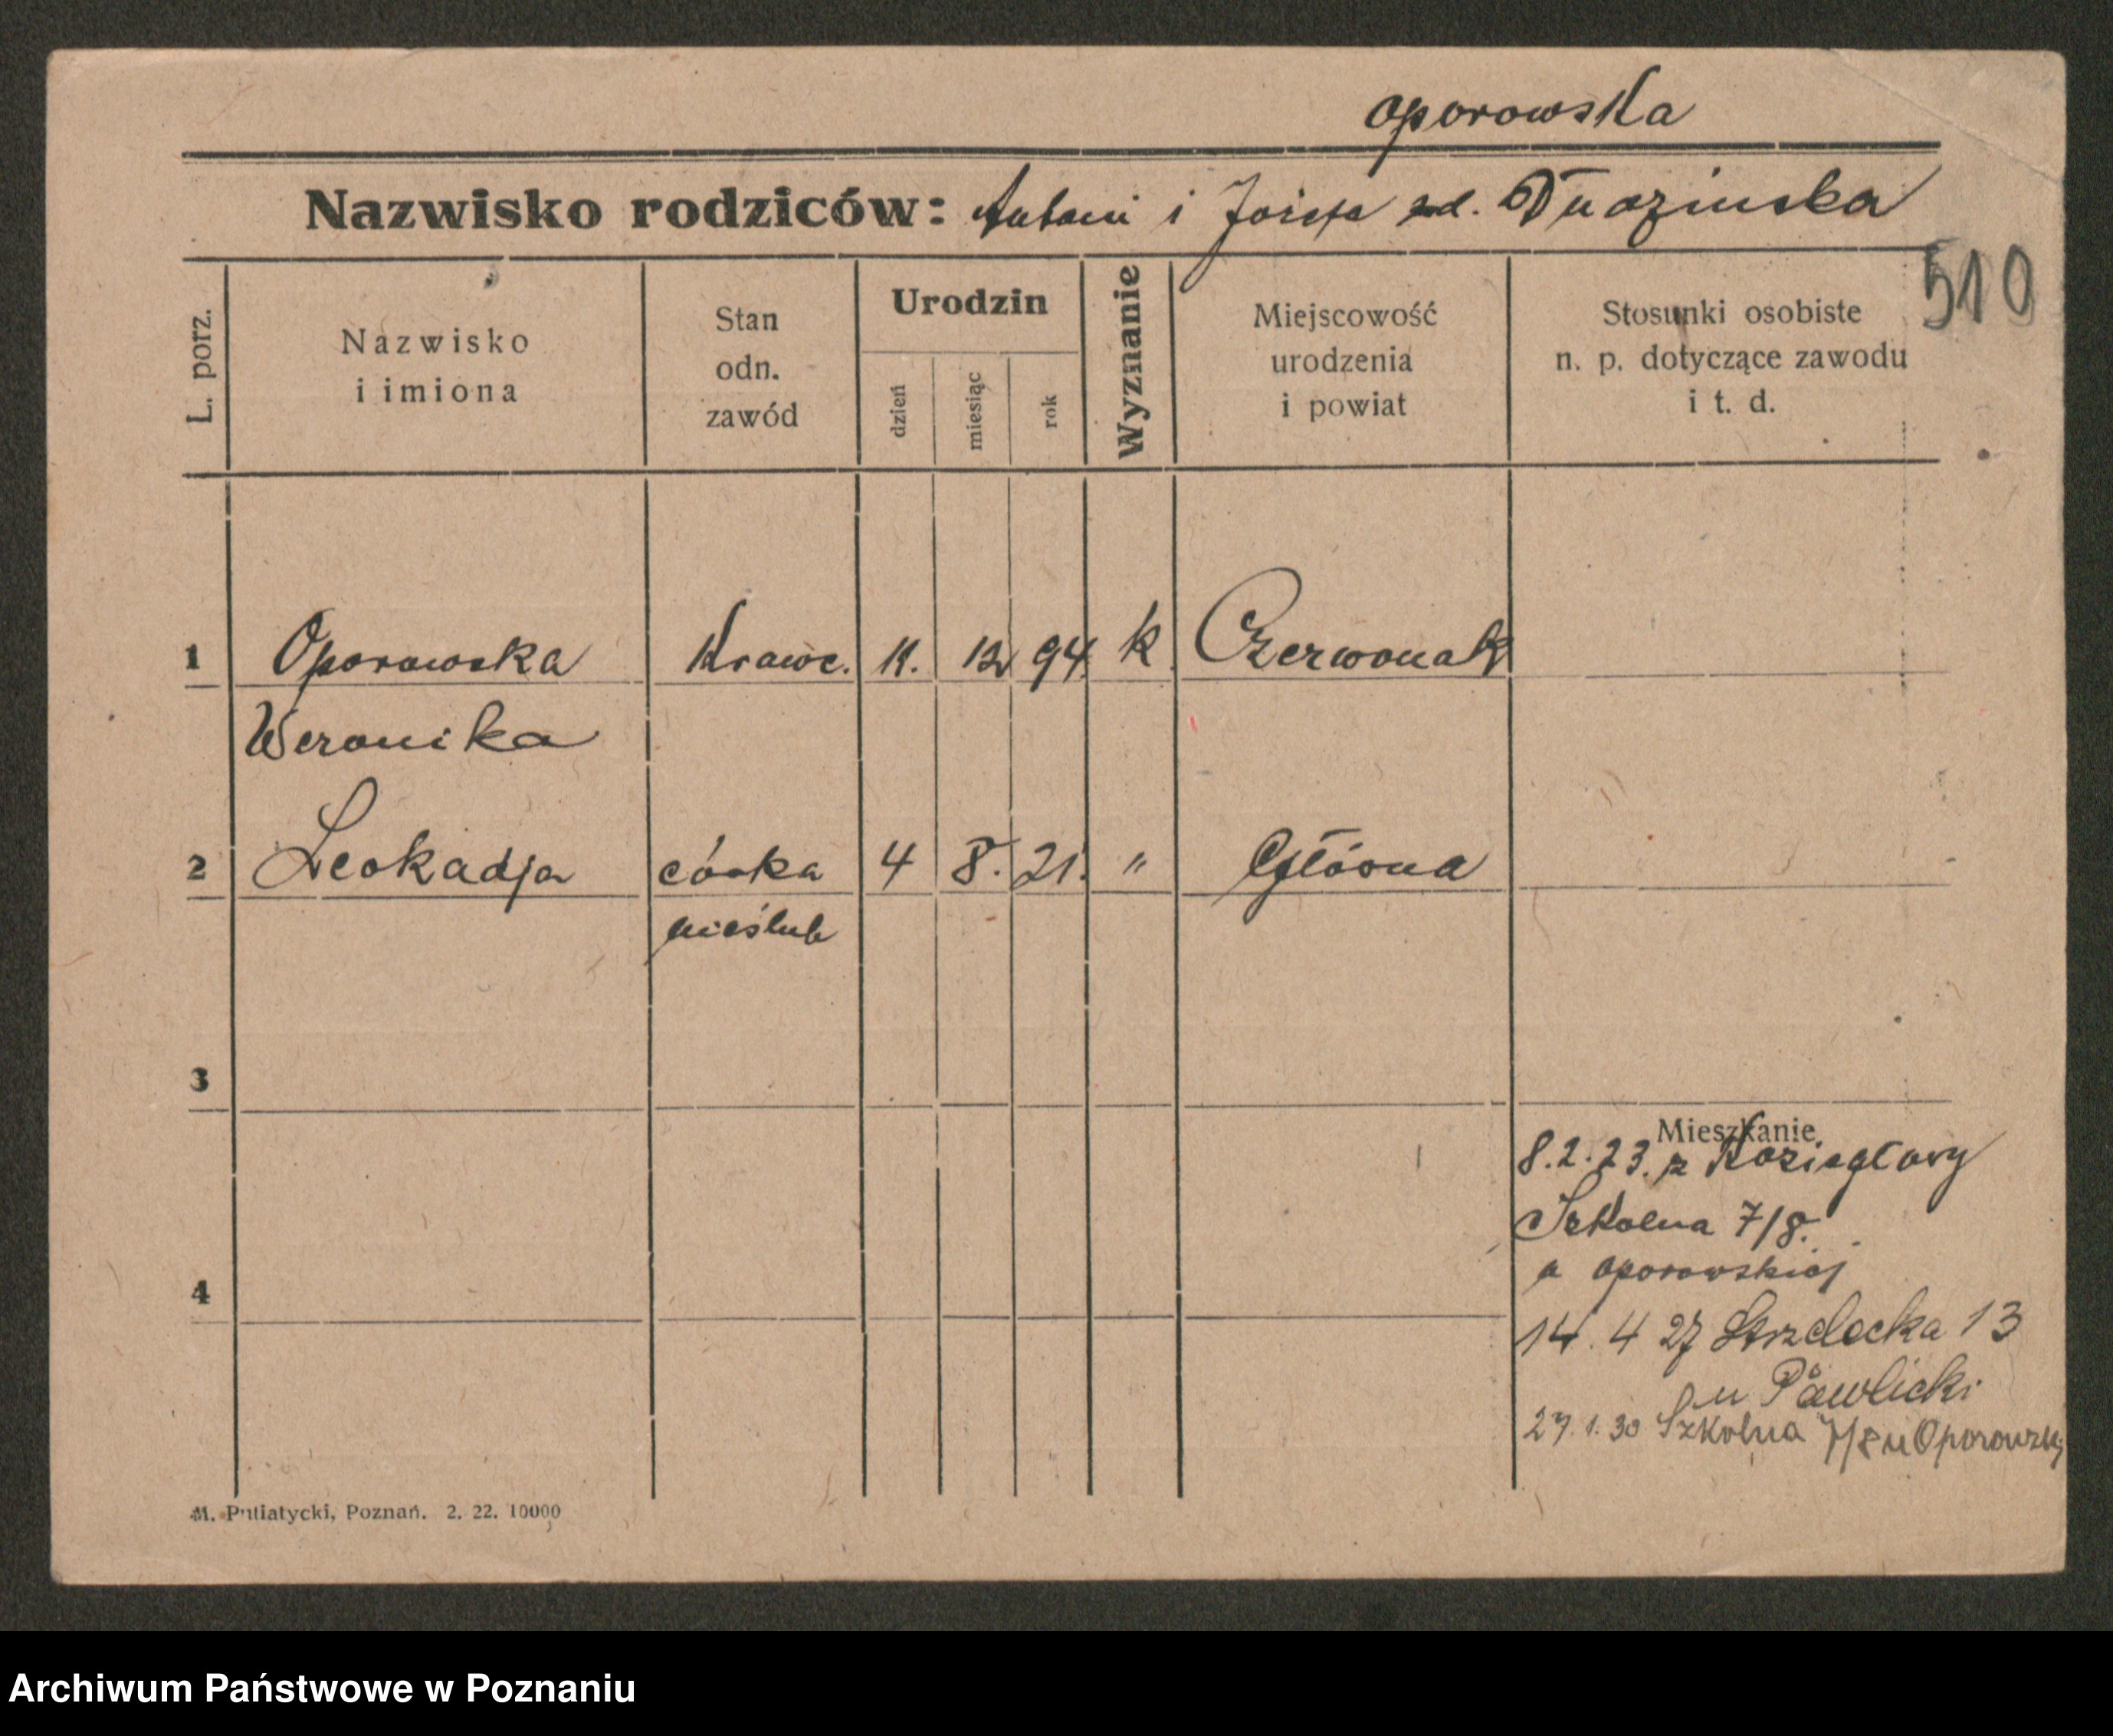 Oporowska
Nazwisko rodziców: Antoni i Józefa zd.
510
L. porz.
Nazwisko i imiona
Stan odn. zawód
Urodzin
dzień
miesiąc
rok
Wyznanie
Miejscowość urodzenia i powiat
Stosunki osobiste n. p. dotyczące zawodu i t. d.
1 Oporowska Krawc. 11. 12 94. k. Czerwonak
Weronika
2 Leokadja córka 4 8. 21. " Główna
nieślub
3
Mieszkanie
8.2.23. z Koziegłowy
Szkolna 7/8.
u Oporowskiej
4
14. 4 27 Strzelecka 13
u Pawlicki
27.1.30 Szkolna 7/8 u Oporowskiej
M. Putiatycki, Poznań. 2. 22. 10000
Archiwum Państwowe w Poznaniu